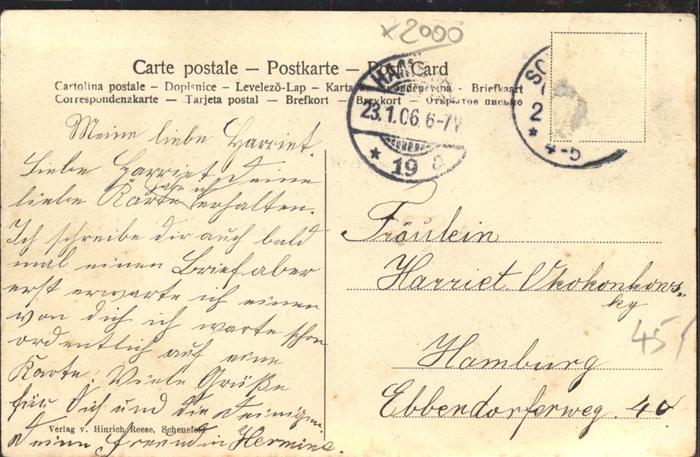 x2000
Carte postale — Postkarte — Post Card
Cartolina postale – Dopisnice – Levelező-Lap – Karta korespondencyjna – Briefkaart
Correspondenzkarte – Tarjeta postal – Brefkort – Brevkort – Открытое письмо
HAM
23.1.06 6-7N
* 19 a
SC
2
* 4-5
Meine liebe Harriet.
Liebe Harriet deine
liebe Karte habe ich erhalten.
Ich schreibe dir auch bald
mal einen Brief aber
erst erwarte ich einen
von dich ich warte schon
ordentlich auf eine
Karte. Viele Grüße
für Dich und die Deinigen
Deine Freundin Hermine.
Fräulein
Harriet
ky
Hamburg
Ebbendorferweg. 40
45
Verlag v. Hinrich Reese, Schenefeld